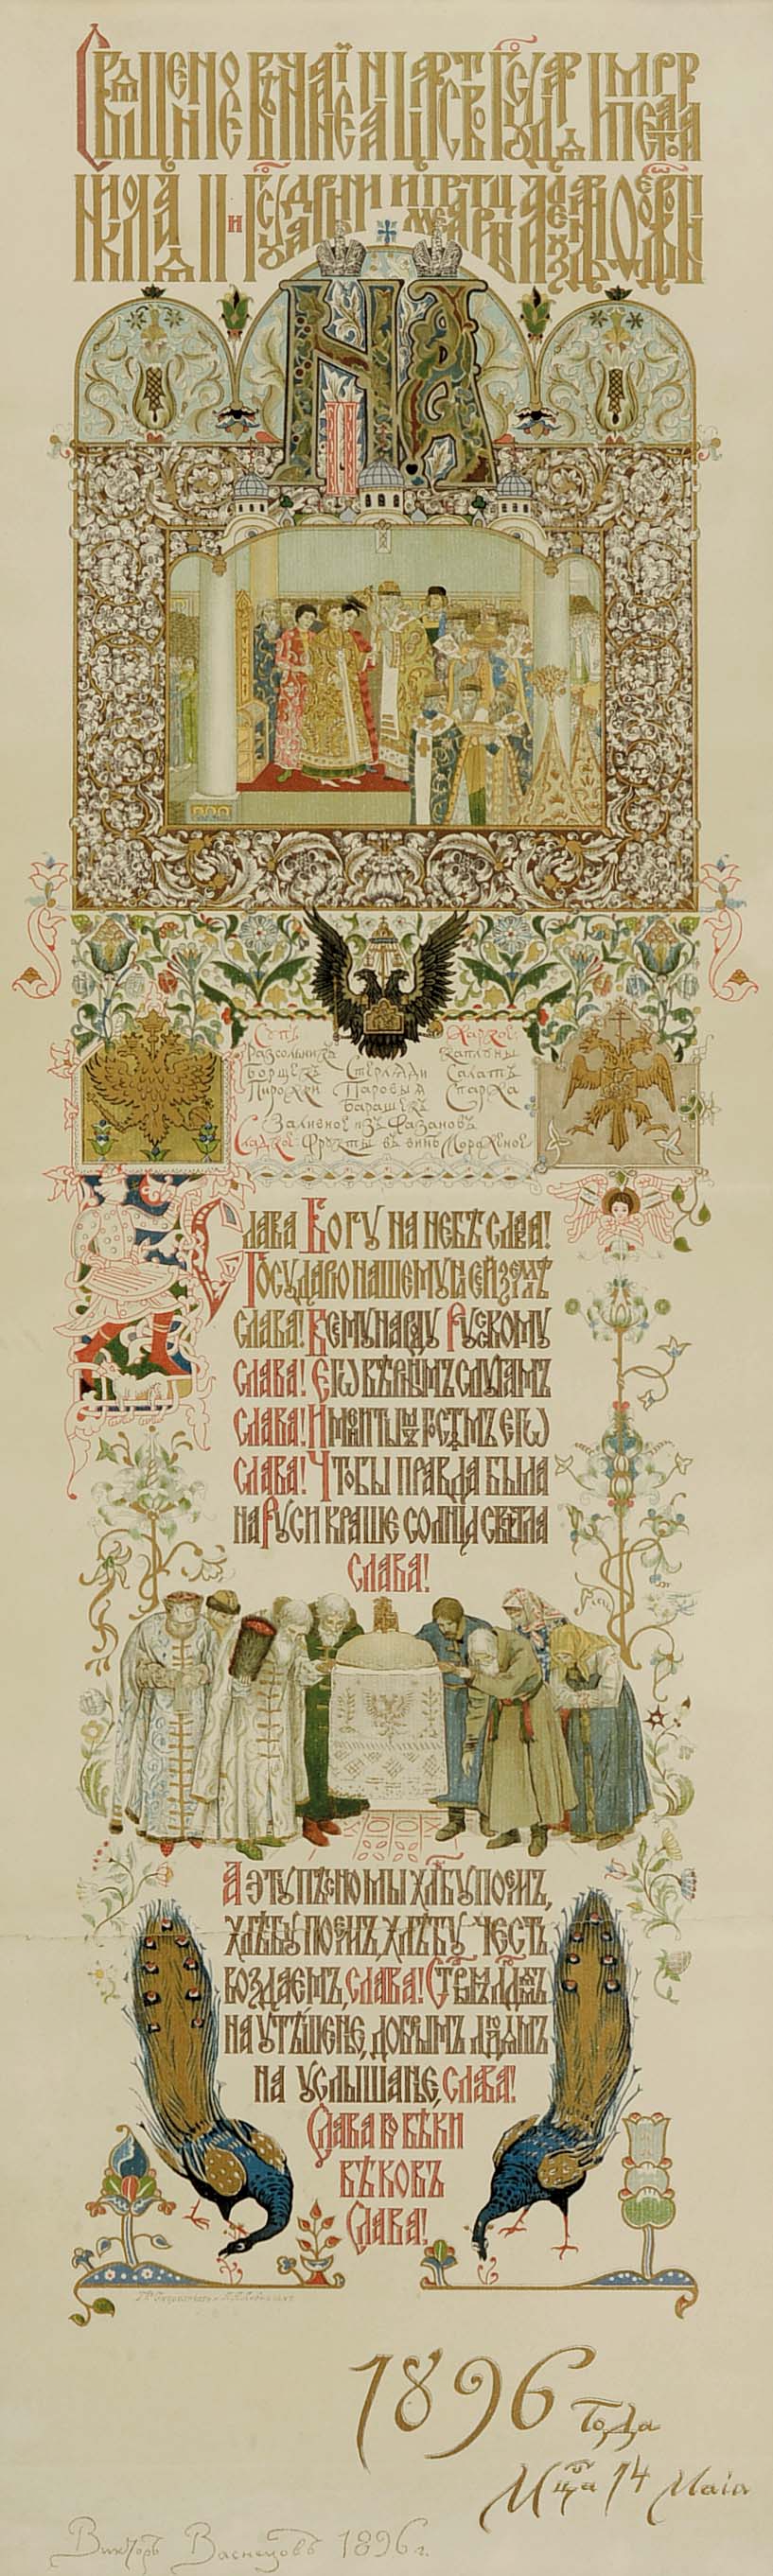 Священное Вѣнчанїе на Царство Государя Императора
Николая II и Государыни Императрицы Александры Ѳеодоровны
Н А
II
Супъ: Жаркое:
Разсольникъ Стерляди Каплуны
Борщекъ Паровыя Салатъ
Пирожки Барашекъ Спаржа
Заливное изъ Фазановъ
Сладкое: Фрукты въ винѣ Мороженое
Слава Богу на небѣ слава!
Государю нашему на сей землѣ
слава! Всему народу Рускому
слава! Егѡ вѣрнымъ слугамъ
слава! Имянитымъ гостямъ егѡ
слава! Чтобы правда была
на Руси краше солнца свѣтла
слава!
А эту пѣсню мы хлѣбу поемъ,
хлѣбу поемъ, хлѣбу честь
воздаемъ, слава! Старымъ людямъ
на утѣшенье, добрымъ людямъ
на услышанье, слава!
Слава во вѣки
вѣковъ
Слава!
1896 Года
Мца 14 Маiя
Викторъ Васнецовъ 1896 г.